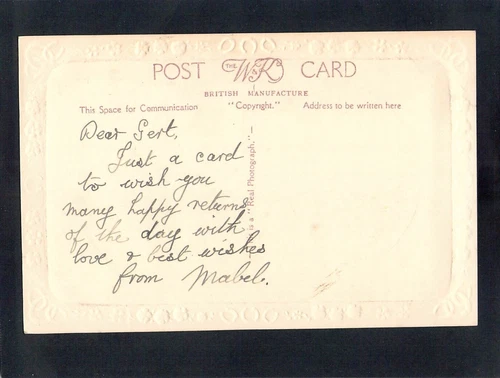 POST THE W&K CARD
BRITISH MANUFACTURE
This Space for Communication "Copyright." Address to be written here
Dear Gert,
Just a card
to wish you
many happy returns
of the day with
love & best wishes
from Mabel.
is a "Real Photograph."